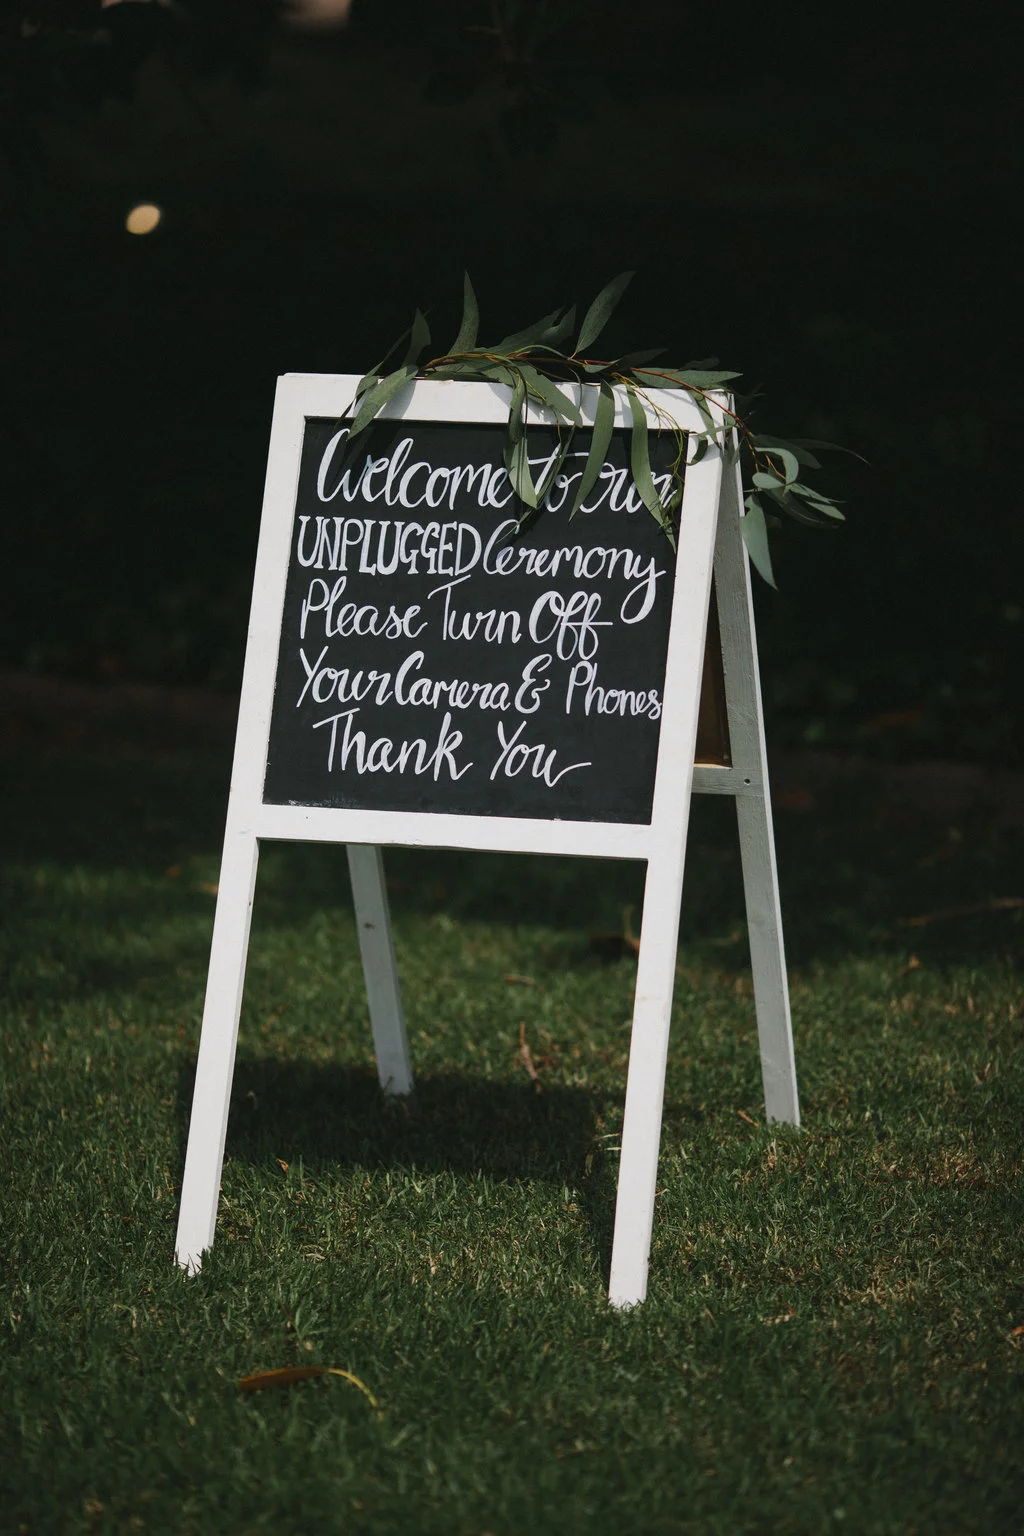 Welcome to our
UNPLUGGED Ceremony
Please Turn Off
Your Camera & Phones
Thank You